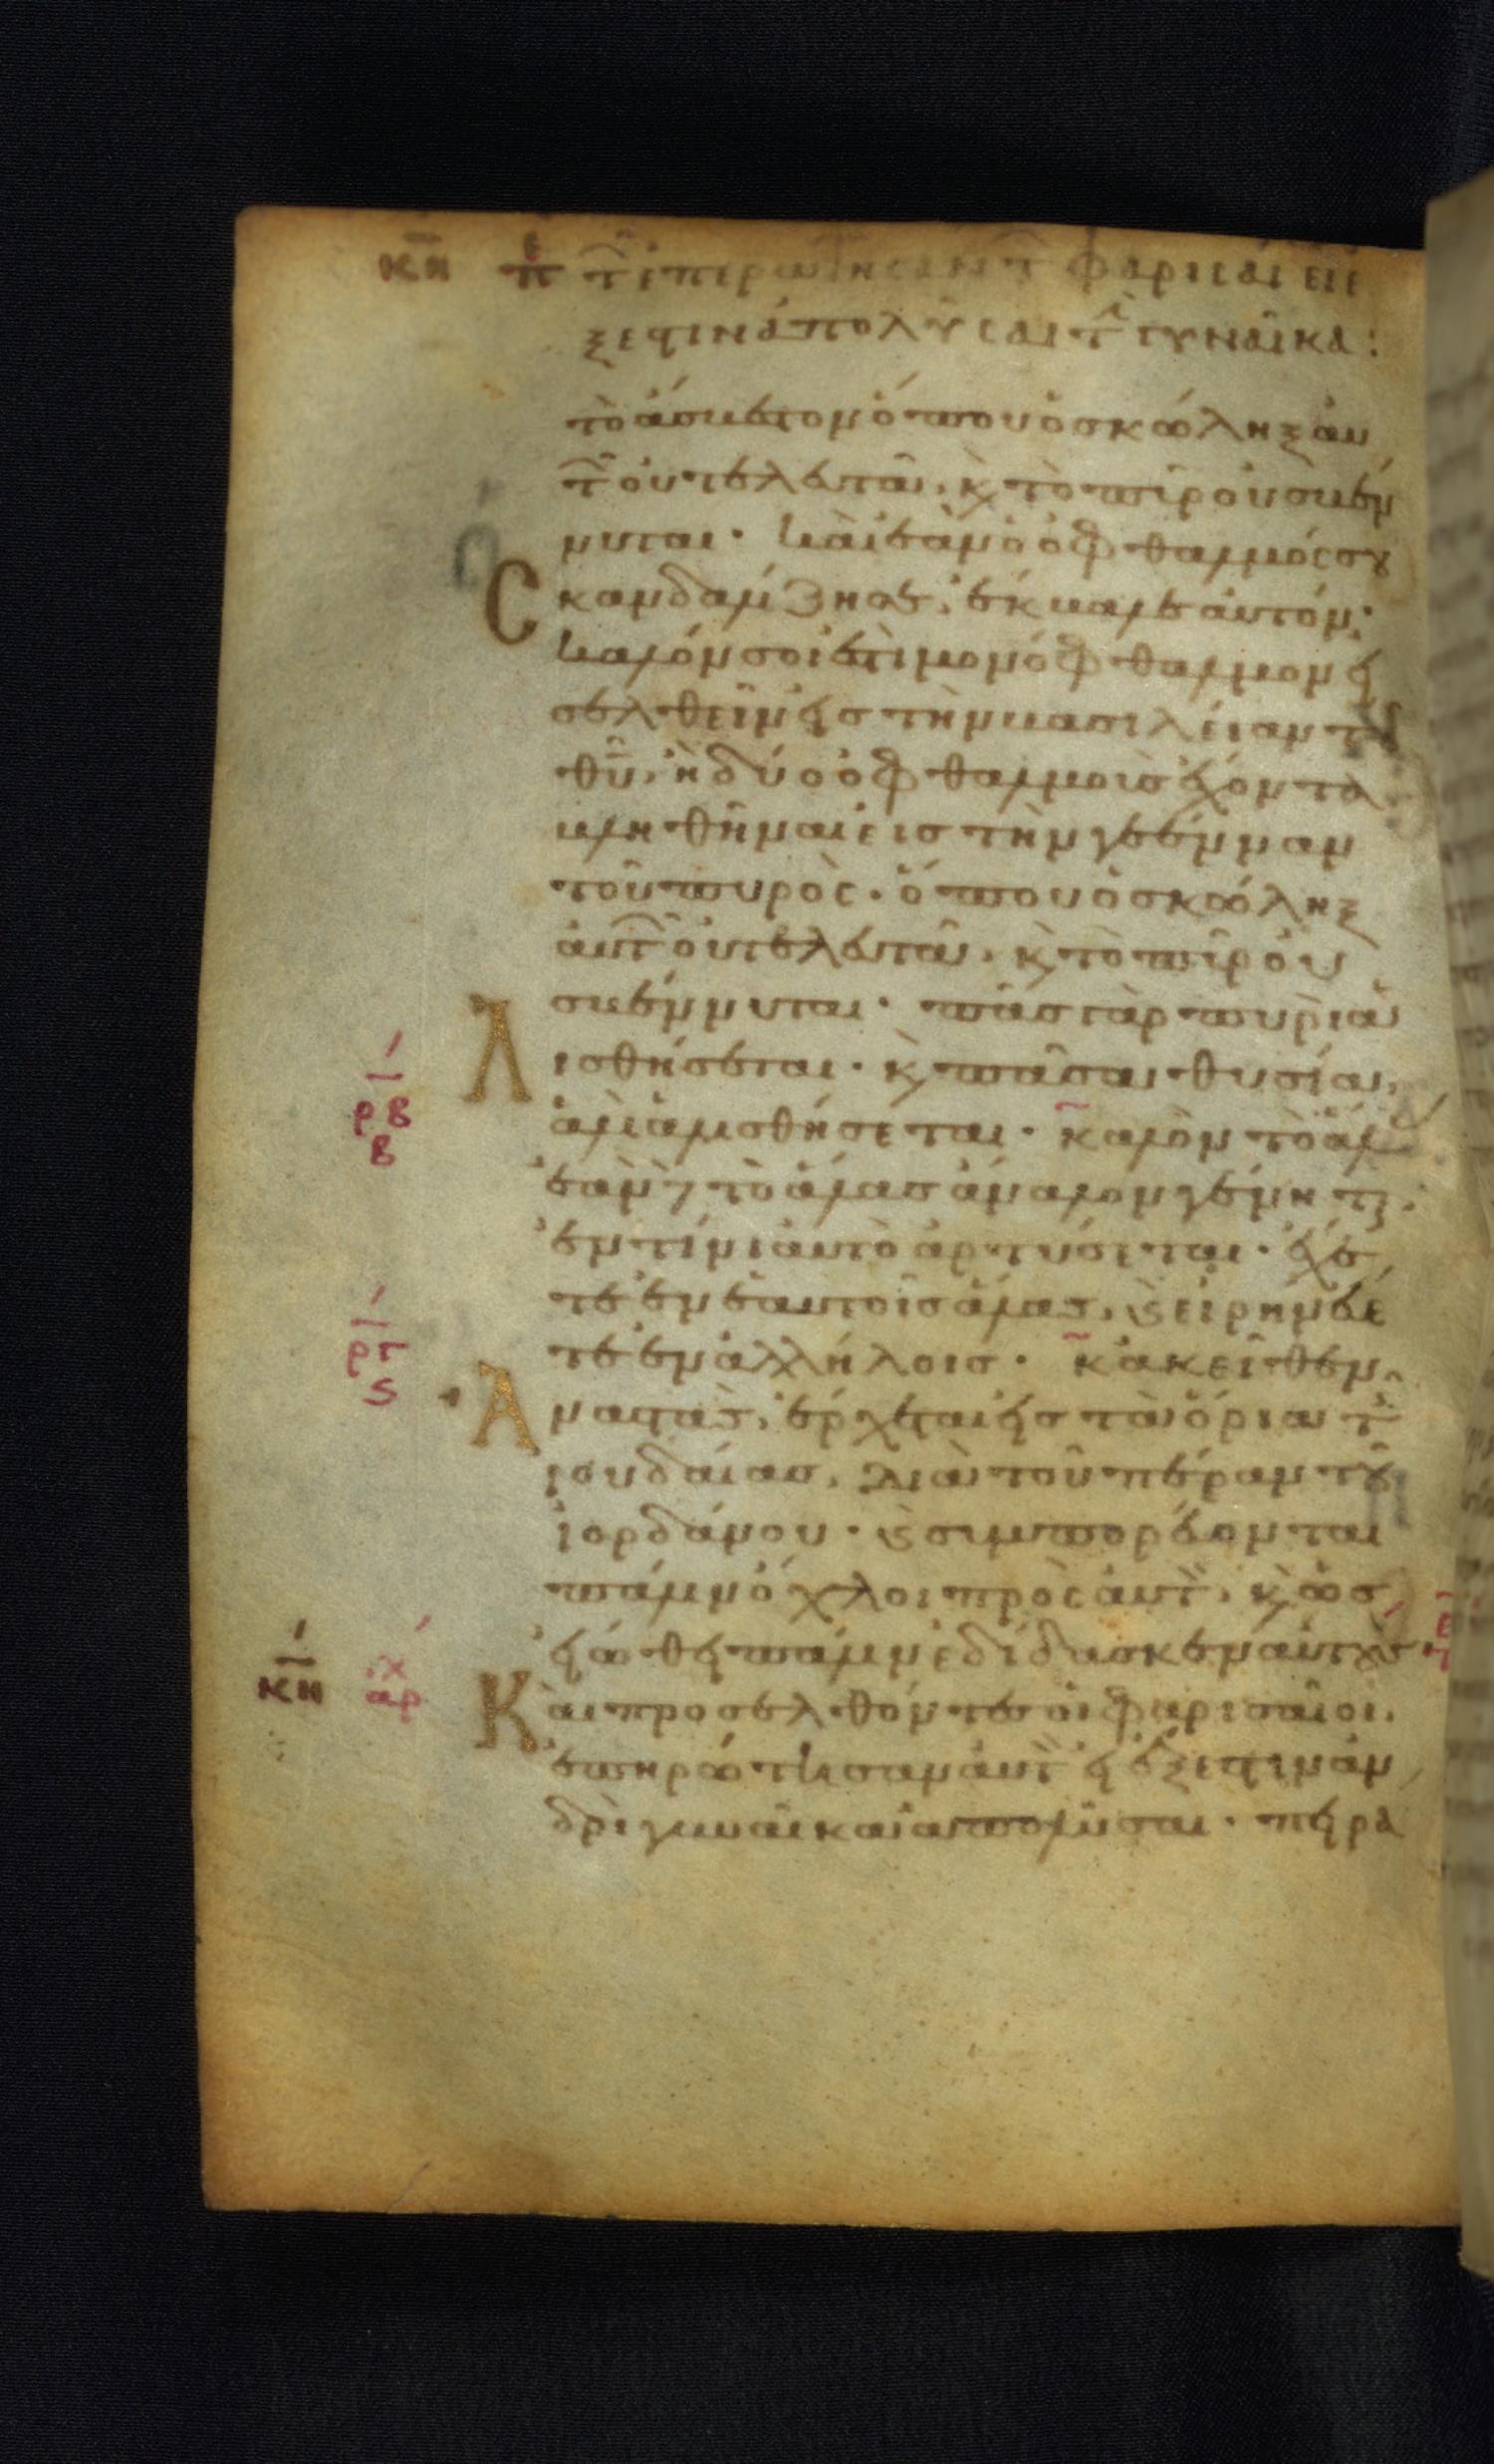 κη πε τ̂ ἐπερωτησάντ φαρισάι ει ε
ξεστιν ἀπολῦσαι τ̂ γυναῖκα:
τὸ ἄσβεστον ὅπου ὁ σκώληξ αυ
τ̂ οὐ τελευτᾶ, κ̀ τὸ πῦρ οὐ σβέν
νυται· καὶ ἐὰν ὁ ὀφθαλμός σου
Σκανδαλίζη σε, ἔκβαλε αυτόν·
καλόν σοι ἐστὶ μονόφθαλμον εἰ
σελθεῖν εἰς τὴν βασιλείαν τοῦ
θῦ, ἢ δύο ὀφθαλμοὺς ἔχοντα
βληθῆναι εις τὴν γέενναν
τοῦ πυρὸς· ὅπου ὁ σκώληξ
ἀυτ̂ οὐ τελευτᾶ, κ̀ τὸ πῦρ ὀυ
σβέννυται· πᾶς γὰρ πυρὶ ἁ
Λισθήσεται· κ̀ πᾶσα θυσία,
ἁλὶ ἁλισθήσεται· καλὸν τὸ ἅλας
ἐὰν δὲ τὸ ἅλας ἄναλον γένηται,
ἐν τίνι ἀυτὸ ἀρτύσεται· ἔχε
τε ἐν ἑαυτοῖς ἅλας, κ̀ εἰρηνεύε
τε ἐν ἀλλήλοις· κἀκεῖθεν
Ἀναστὰς, ἔρχεται εἰς τὰ ὅρια τ̂
ιουδαίας, διὰ τοῦ πέραν τοῦ
ἰορδάνου· κ̀ συμπορεύονται
πάλιν ὄχλοι πρὸς ἀυτ̀, κ̀ ὡς
εἰώθει πάλιν ἐδίδασκεν ἀυτούς·
Κὰι προσελθόντες οἱ φαρισαῖοι,
ἐπηρώτησαν ἀυτ̀ εἰ ἔξεστιν ἀν
δρὶ γυναῖκα ἀπολῦσαι· πειρά
ρβ
β
ργ
ς
κη
ἀρχ